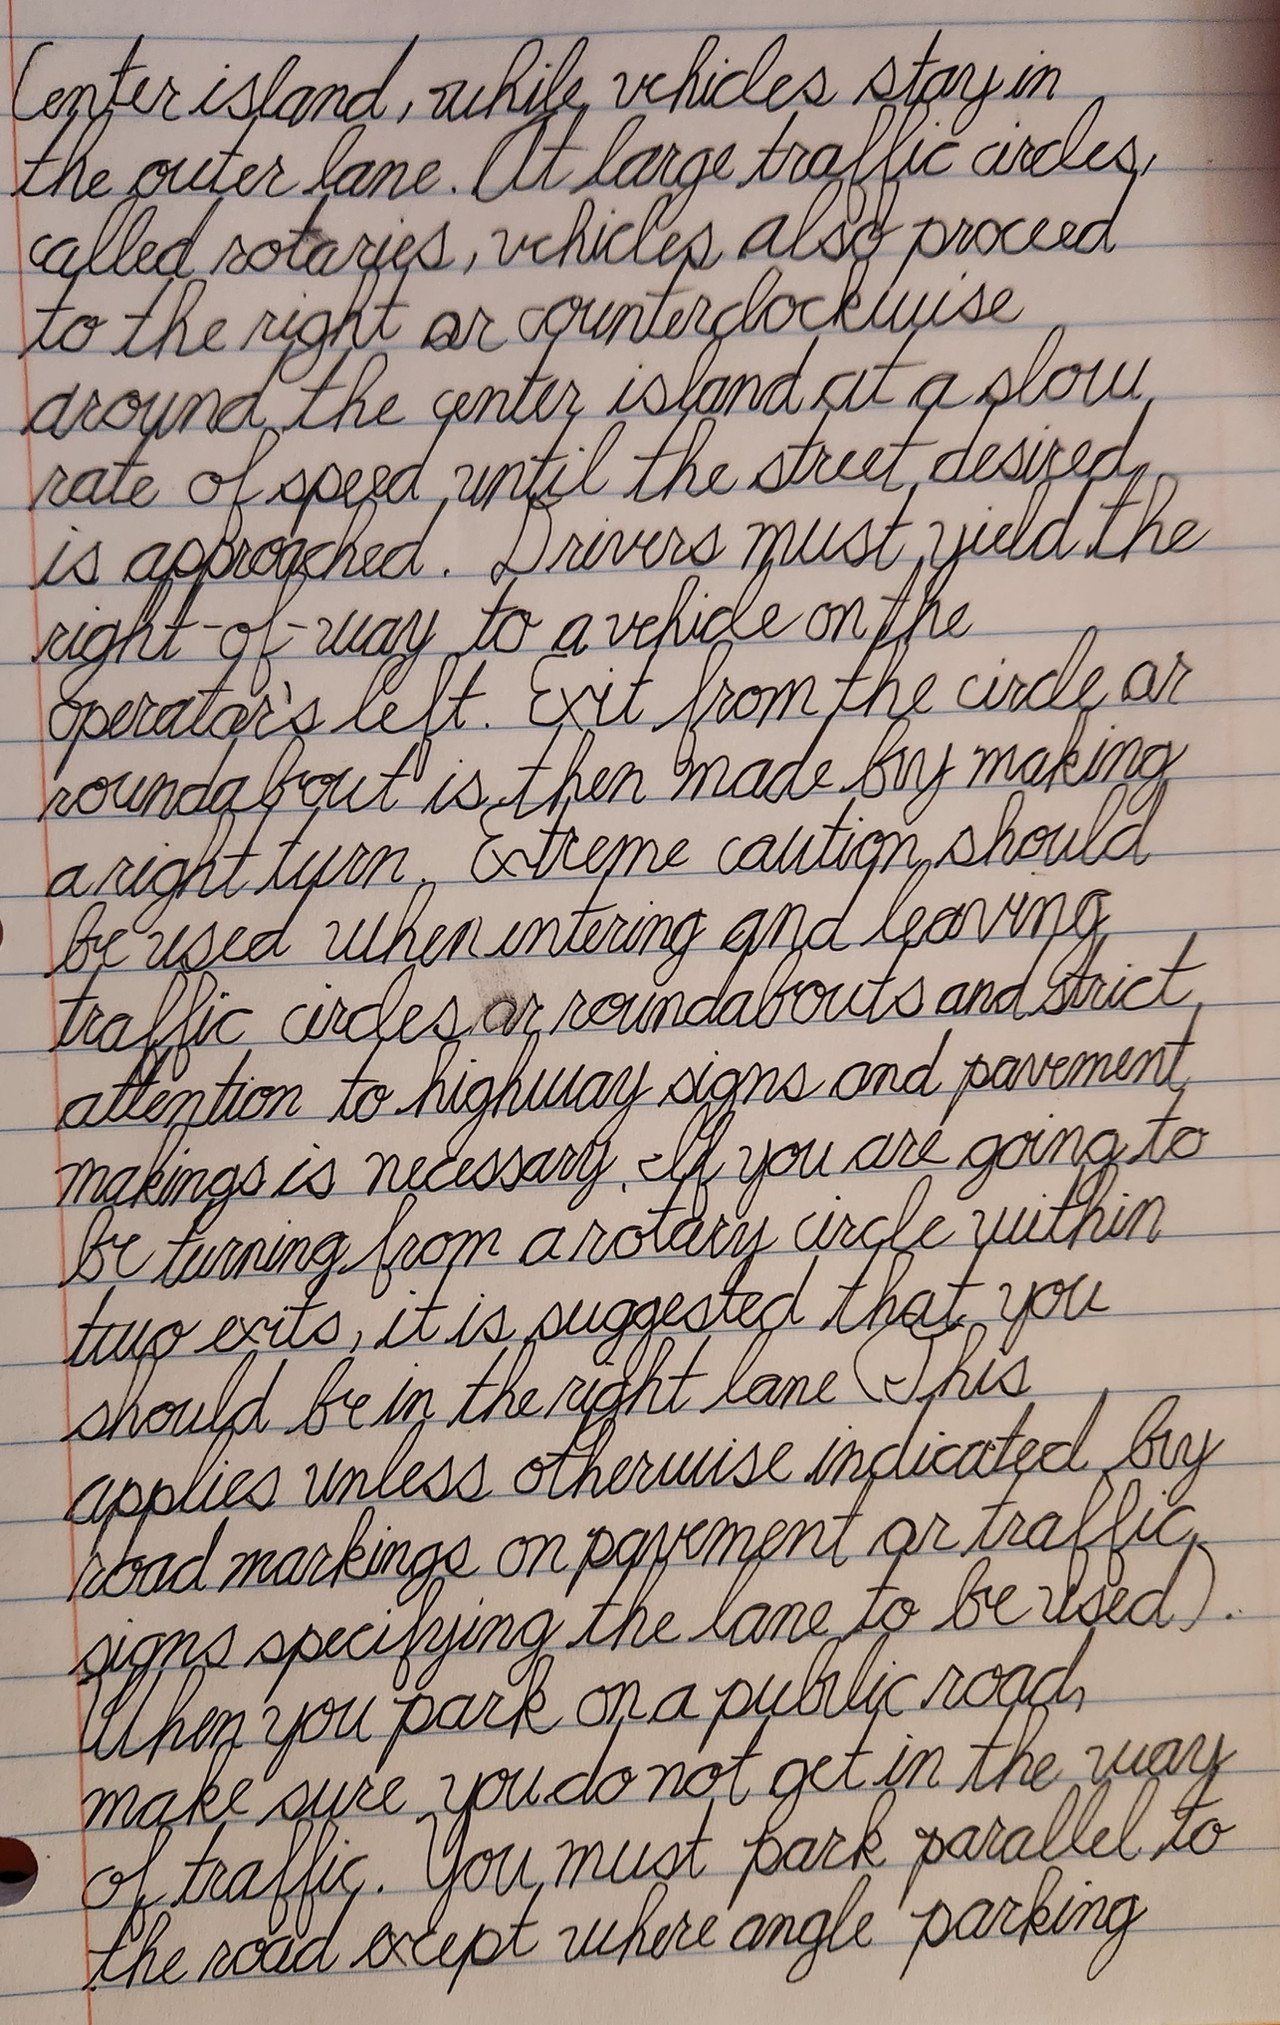 Center island, while vehicles stay in
the outer lane. At large traffic circles,
called rotaries, vehicles also proceed
to the right or counterclockwise
around the center island at a slow
rate of speed until the street desired
is approached. Drivers must yield the
right-of-way to a vehicle on the
operator's left. Exit from the circle or
roundabout is then made by making
a right turn. Extreme caution should
be used when intering and leaving
traffic circles or roundabouts and strict
attention to highway signs and pavement
makings is necessary. If you are going to
be turning from a rotary circle within
two exits, it is suggested that you
should be in the right lane (This
applies unless otherwise indicated by
road markings on pavement or traffic
signs specifying the lane to be used).
When you park on a public road,
make sure you do not get in the way
of traffic. You must park parallel to
the road except where angle parking